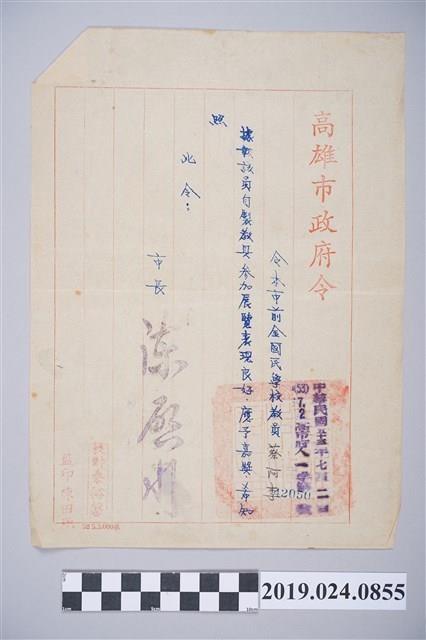 高雄市政府令
中華民國五十五年七月二日
(55)7.2高市府人一字第
62050
號
令本市前金國民學校教員蔡阿李
據報該員自製教具參加展覽表現良好,應予嘉獎,希知
照
此令:
市長
陳啟川
校對秦裕馨
監印陳田
2019.024.0855